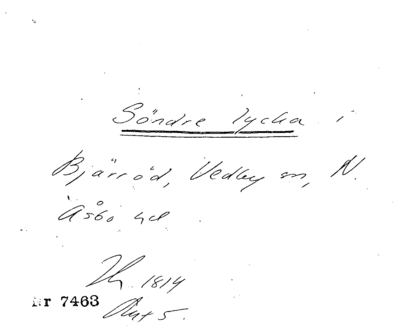 Söndre lycka i
Bjärröd, Vedby sn, N.
Åsbo hd
1814
Nr 7463
Akt 5.